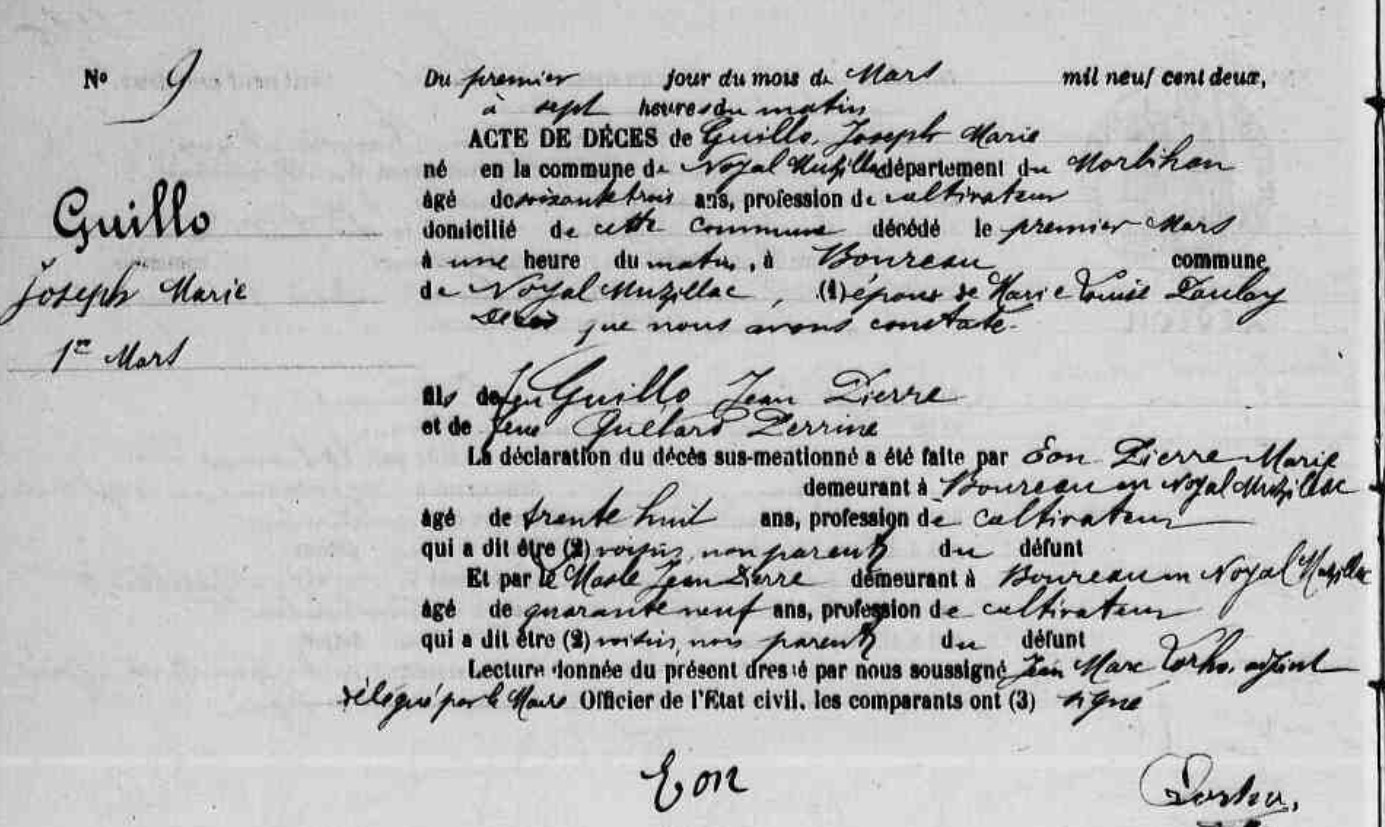 N° 9
Guillo
Joseph Marie
1er Mars
Du premier jour du mois de Mars mil neuf cent deux,
à sept heures du matin
ACTE DE DÉCES de Guillo Joseph Marie
né en la commune de Noyal Muzillac département du Morbihan
âgé de soixante trois ans, profession de cultivateur
domicilié de cette commune décédé le premier Mars
à une heure du matin, à Boureau commune
de Noyal Muzillac, (1) époux de Marie Louise
Décès que nous avons constaté.
fils de feu Guillo Jean Pierre
et de feue Quélard Perrine
La déclaration du décès sus-mentionné a été faite par Eon Pierre Marie
demeurant à Boureau en Noyal Muzillac
âgé de trente huit ans, profession de cultivateur
qui a dit être (2) voisin, non parent du défunt
Et par le Masle Jean Pierre demeurant à Boureau en Noyal Muzillac
âgé de quarante neuf ans, profession de cultivateur
qui a dit être (2) voisin, non parent du défunt
Lecture donnée du présent dressé par nous soussigné Jean Marc Lorho, adjoint
délégué par le Maire Officier de l'Etat civil, les comparants ont (3) signé
Eon
Lorho,